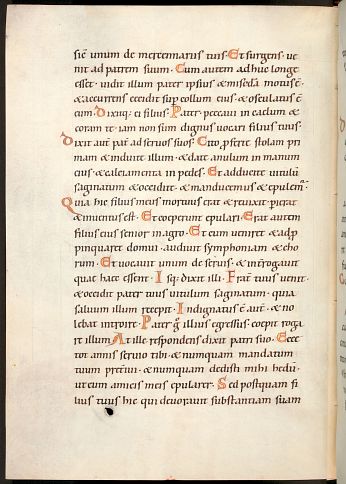 sic̄ unum de mercennarus tuis· Et surgens· ue
nit ad patrem suum· Cum autem adhuc longe
esset· uidit illum pater ipsius & mis̄cdia motus ē·
& accurrens cecidit sup̱ collum eius· & osculatus ē
eum· Dixitq; ei filius· Pater· peccaui in cælum &
coram te· iam non sum dignus uocari filius tuus·
Dixit aut̄ pat̄ ad seruos suos· Cito p̱ferte stolam pri
mam & induite illum· & date anulum in manum
eius· & calciamenta in pedes· Et adducite uitulū
saginatum & occidite· & manducemus & epulem̄·
Quia hic filius meus mortuus erat & reuixit· perierat
& inuentus est· Et coeperunt epulari· Erat autem
filius eius senior in agro· Et cum ueniret & adp̱
pinquaret domui· audiuit symphoniam & cho
rum· Et uocauit unum de seruis· & interrogauit
quae haec essent· Isq; dixit illi· Frat̄ tuus uenit·
& occidit pater tuus uitulum saginatum· quia
saluum illum recepit· Indignatus ē aut̄· & no
lebat introire· Pater g̊ illius egressus· coepit roga
re illum· At ille respondens dixit patri suo· Ecce
tot annis seruio tibi· & numquam mandatum
tuum preteriui· & numquam dedisti mihi hedū·
ut cum amicis meis epularer· Sed postquam fi
lius tuus hic qui deuorauit substantiam suam